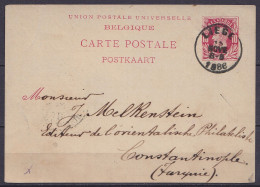 UNION POSTALE UNIVERSELLE
BELGIQUE
CARTE POSTALE
POSTKAART
NOVE
1886
Monsieur
J. Melkenstein
Editeur de l'orientalisch Philatelist
Constantinople
(Turquie).